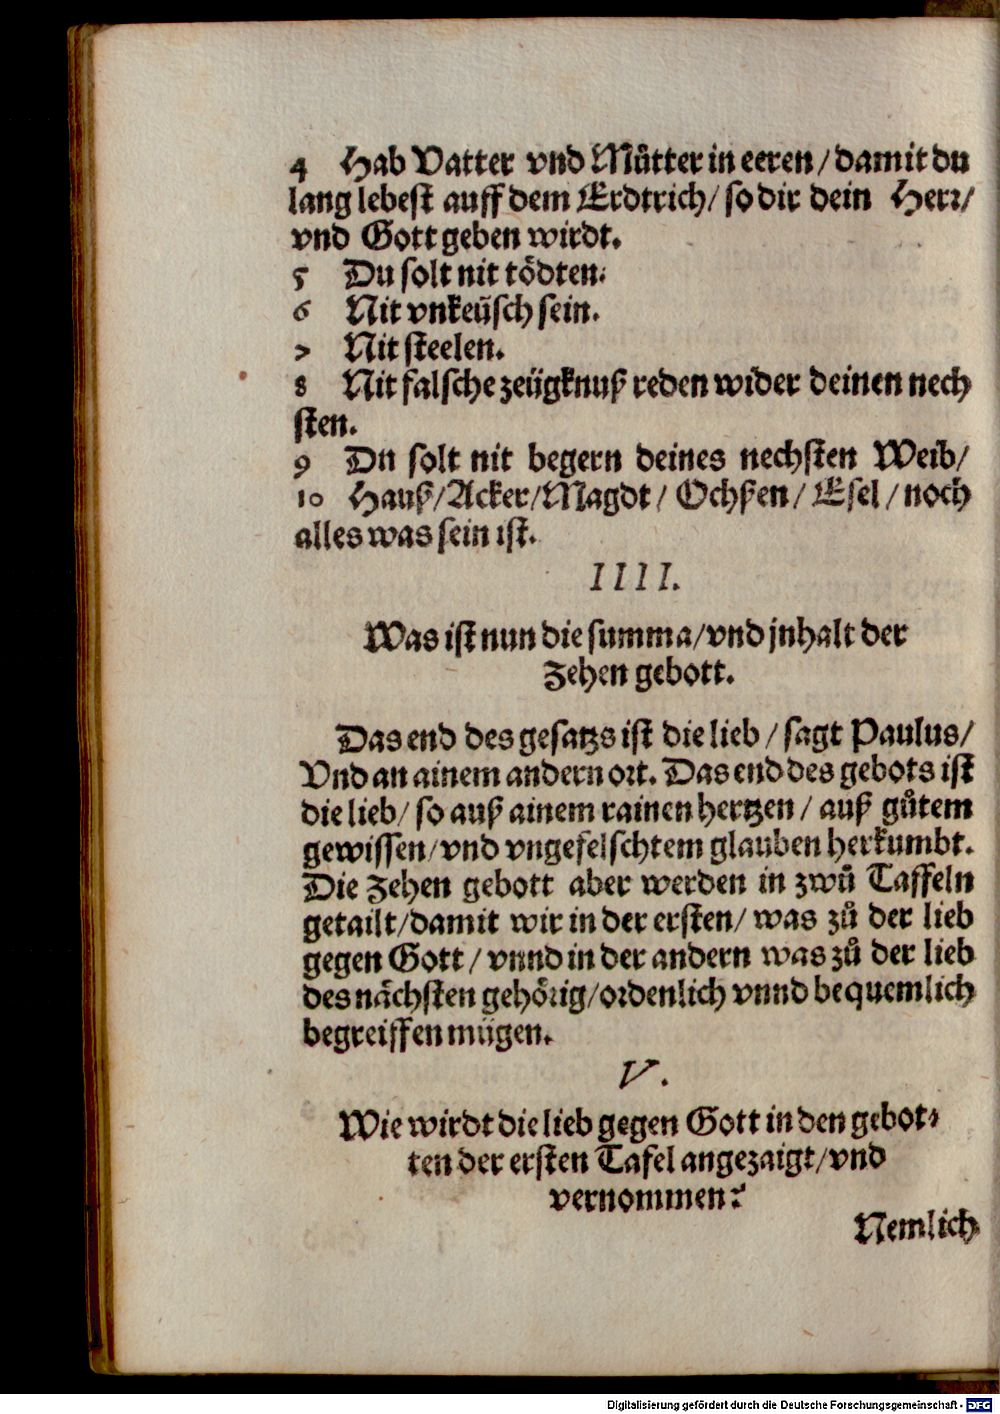 4 Hab Vatter vnd Můtter in eeren / damit du
lang lebest auff dem Erdtrich / so dir dein Herr /
vnd Gott geben wirdt.
5 Du solt nit tödten.
6 Nit vnkeüsch sein.
7 Nit steelen.
8 Nit falsche zeügknuß reden wider deinen nech
sten.
9 Du solt nit begern deines nechsten Weib /
10 Hauß / Acker / Magdt / Ochßen / Esel / noch
alles was sein ist.
IIII.
Was ist nun die summa / vnd jnhalt der
Zehen gebott.
Das end des gesatzs ist die lieb / sagt Paulus /
Vnd an ainem andern ort. Das end des gebots ist
die lieb / so auß ainem rainen hertzen / auß gůtem
gewissen / vnd vngefelschtem glauben herkumbt.
Die Zehen gebott aber werden in zwů Taffeln
getailt / damit wir in der ersten / was zů der lieb
gegen Gott / vnnd in der andern was zů der lieb
des nächsten gehörig / ordenlich vnnd bequemlich
begreiffen mügen.
V.
Wie wirdt die lieb gegen Gott in den gebot⸗
ten der ersten Tafel angezaigt / vnd
vernommen?
Nemlich
Digitalisierung gefördert durch die Deutsche Forschungsgemeinschaft - DFG